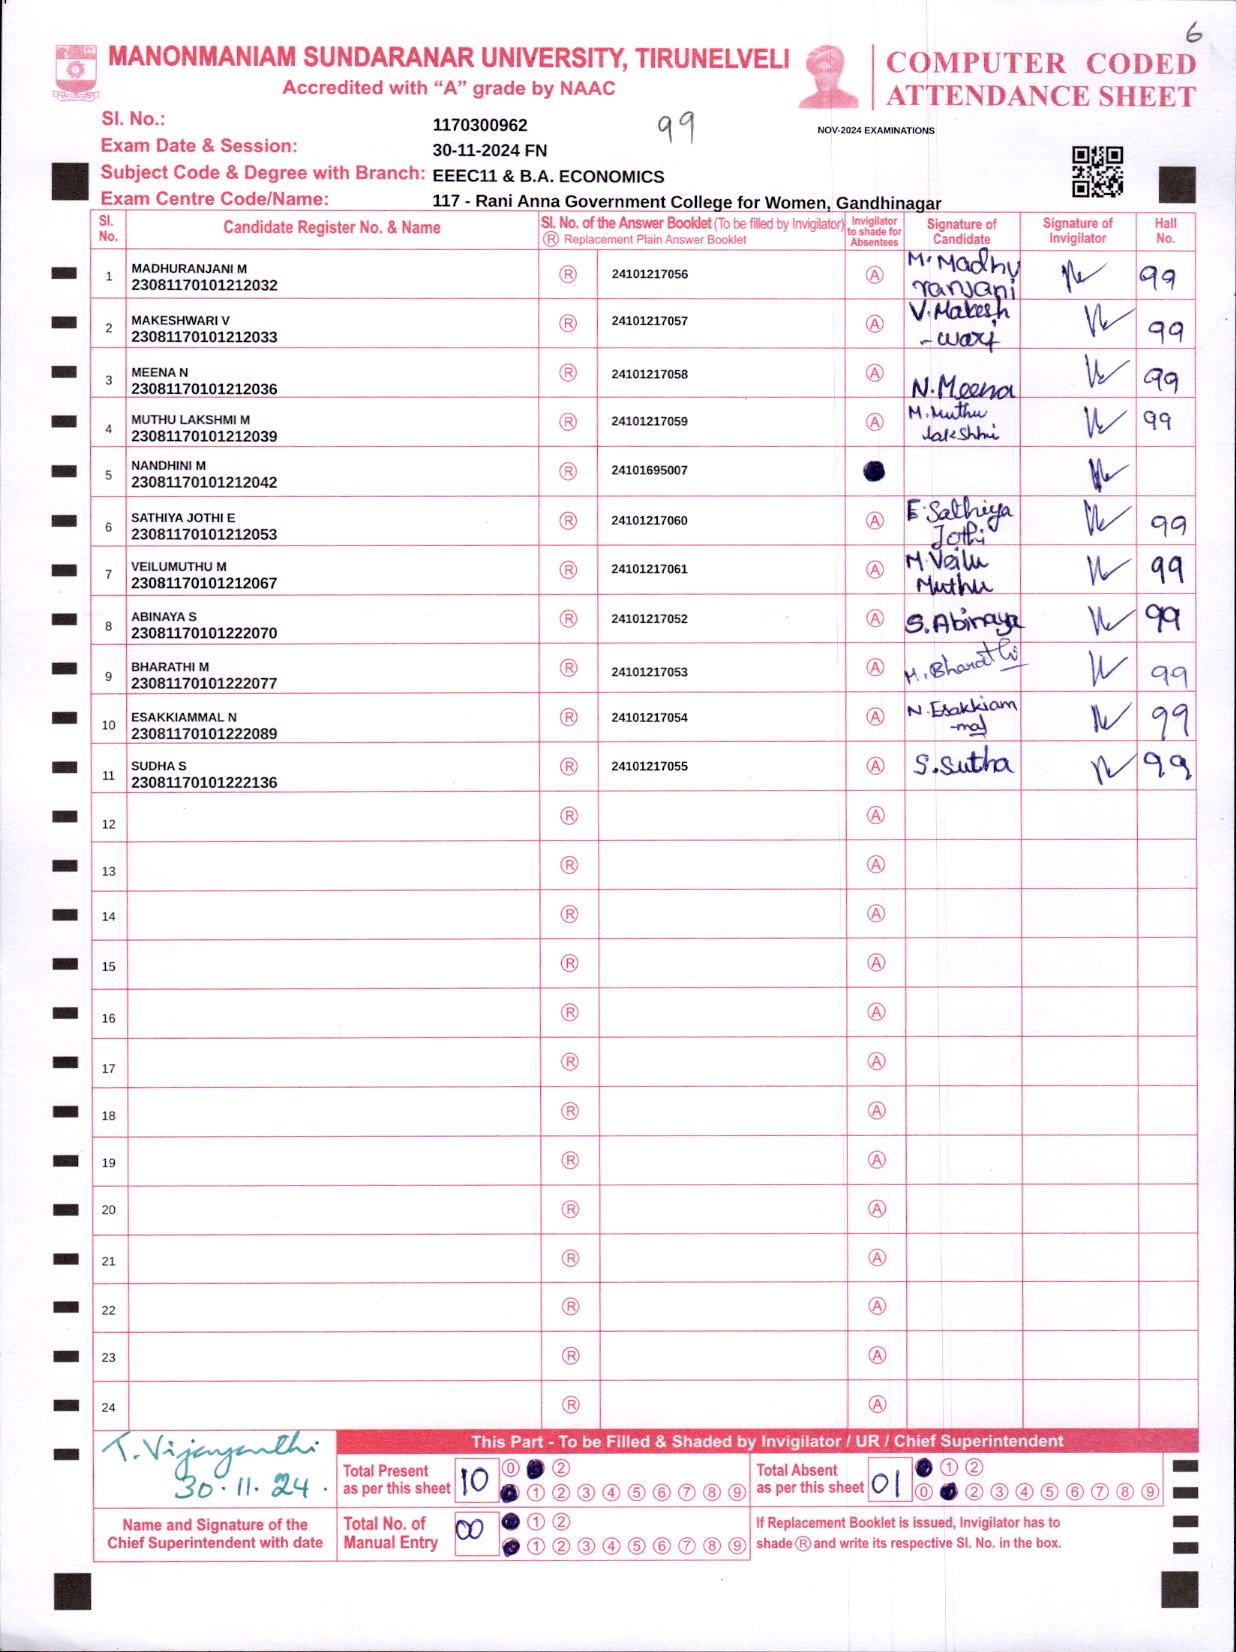 6
MANONMANIAM SUNDARANAR UNIVERSITY, TIRUNELVELI
Accredited with “A” grade by NAAC
COMPUTER CODED
ATTENDANCE SHEET
Sl. No.: 1170300962 99 NOV-2024 EXAMINATIONS
Exam Date & Session: 30-11-2024 FN
Subject Code & Degree with Branch: EEEC11 & B.A. ECONOMICS
Exam Centre Code/Name: 117 - Rani Anna Government College for Women, Gandhinagar
Sl. No. Candidate Register No. & Name Sl. No. of the Answer Booklet (To be filled by Invigilator) Ⓡ Replacement Plain Answer Booklet Invigilator to shade for Absentees Signature of Candidate Signature of Invigilator Hall No.
1 MADHURANJANI M 23081170101212032 Ⓡ 24101217056 Ⓐ M. Madhu ranjani 99
2 MAKESHWARI V 23081170101212033 Ⓡ 24101217057 Ⓐ V. Makesh -wari 99
3 MEENA N 23081170101212036 Ⓡ 24101217058 Ⓐ N. Meena 99
4 MUTHU LAKSHMI M 23081170101212039 Ⓡ 24101217059 Ⓐ M. Muthu lakshmi 99
5 NANDHINI M 23081170101212042 Ⓡ 24101695007
6 SATHIYA JOTHI E 23081170101212053 Ⓡ 24101217060 Ⓐ E. Sathiya Jothi 99
7 VEILUMUTHU M 23081170101212067 Ⓡ 24101217061 Ⓐ M. Veilu Muthu 99
8 ABINAYA S 23081170101222070 Ⓡ 24101217052 Ⓐ S. Abinaya 99
9 BHARATHI M 23081170101222077 Ⓡ 24101217053 Ⓐ M. Bharathi 99
10 ESAKKIAMMAL N 23081170101222089 Ⓡ 24101217054 Ⓐ N. Esakkiam -mal 99
11 SUDHA S 23081170101222136 Ⓡ 24101217055 Ⓐ S. Sutha 99
12 Ⓡ Ⓐ
13 Ⓡ Ⓐ
14 Ⓡ Ⓐ
15 Ⓡ Ⓐ
16 Ⓡ Ⓐ
17 Ⓡ Ⓐ
18 Ⓡ Ⓐ
19 Ⓡ Ⓐ
20 Ⓡ Ⓐ
21 Ⓡ Ⓐ
22 Ⓡ Ⓐ
23 Ⓡ Ⓐ
24 Ⓡ Ⓐ
T. Vijayanthi
30.11.24.
Name and Signature of the
Chief Superintendent with date
This Part - To be Filled & Shaded by Invigilator / UR / Chief Superintendent
Total Present
as per this sheet 10
⓪ ②
① ② ③ ④ ⑤ ⑥ ⑦ ⑧ ⑨
Total Absent
as per this sheet 01
① ②
⓪ ② ③ ④ ⑤ ⑥ ⑦ ⑧ ⑨
Total No. of
Manual Entry 00
① ②
① ② ③ ④ ⑤ ⑥ ⑦ ⑧ ⑨
If Replacement Booklet is issued, Invigilator has to
shade Ⓡ and write its respective Sl. No. in the box.